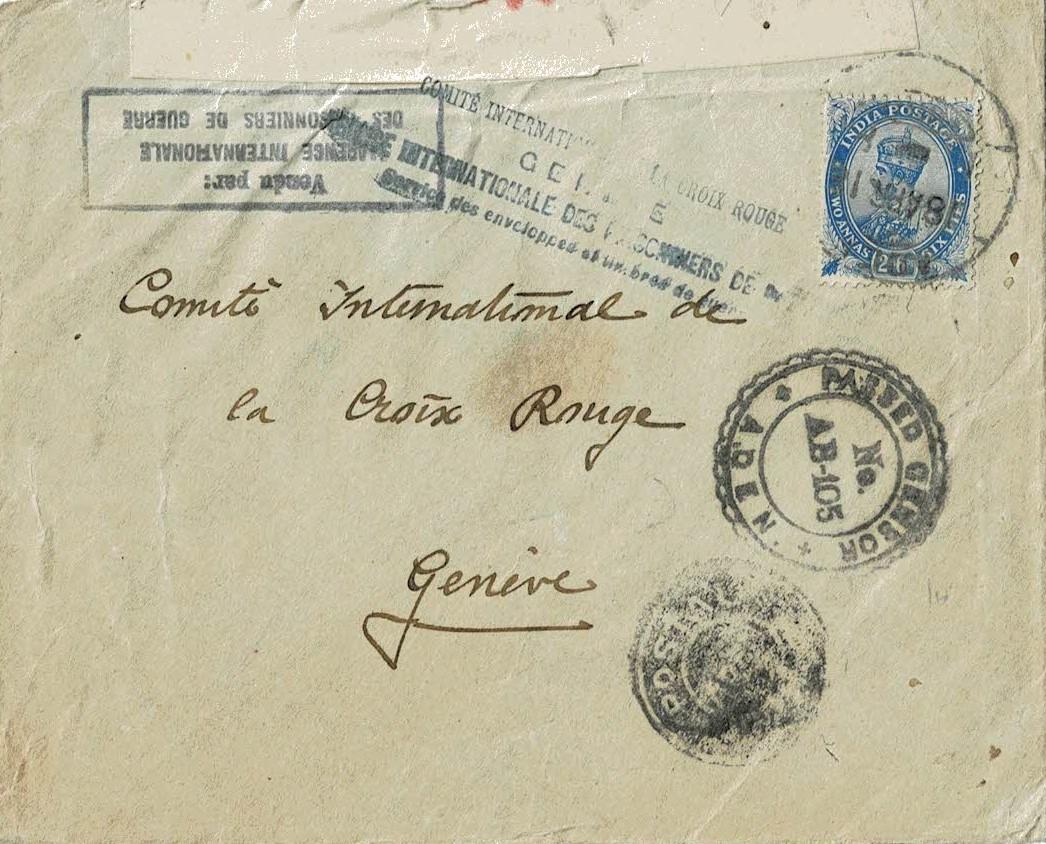 Vendu par:
L'AGENCE INTERNATIONALE
DES PRISONNIERS DE GUERRE
COMITÉ INTERNATIONAL LA CROIX ROUGE
INTERNATIONALE DES PRISONNIERS DE
Service des enveloppes et timbres de
INDIA POSTAGE
TWO ANNAS SIX PIES
2As6p
Comité International de
la Croix Rouge
Genève
PASSED CENSOR
ADEN
No.
AB-105
POSTAL